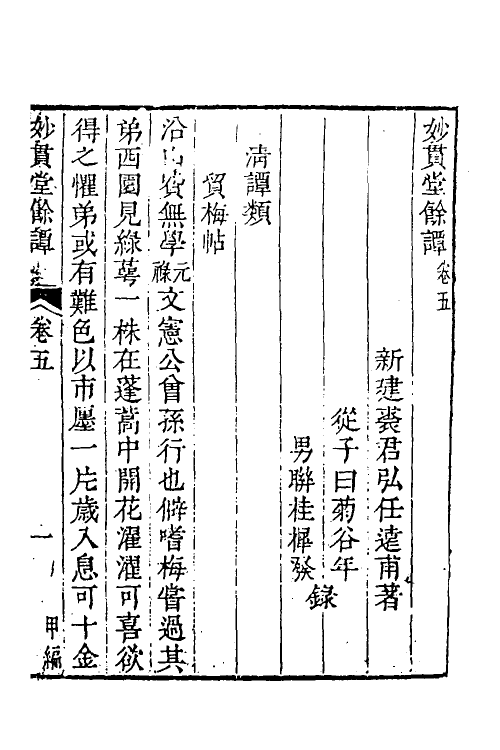 妙貫堂餘譚卷五
新建裘君弘任遠甫著
從子曰菊谷年
男聯桂樨發
錄
清譚類
貿梅帖
沿山費無學元祿文憲公曾孫行也僻嗜梅嘗過其
弟西園見綠萼一株在蓬蒿中開花濯濯可喜欲
得之懼弟或有難色以市廛一片歲入息可十金
妙貫堂餘譚
卷五
一
甲編